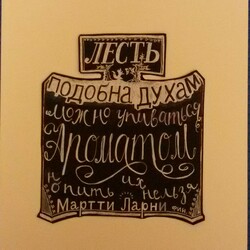 ЛЕСТЬ
ПОДОБНА ДУХАМ
можно упиваться
Ароматом
но пить их нельзя
Мартти Ларни фин.